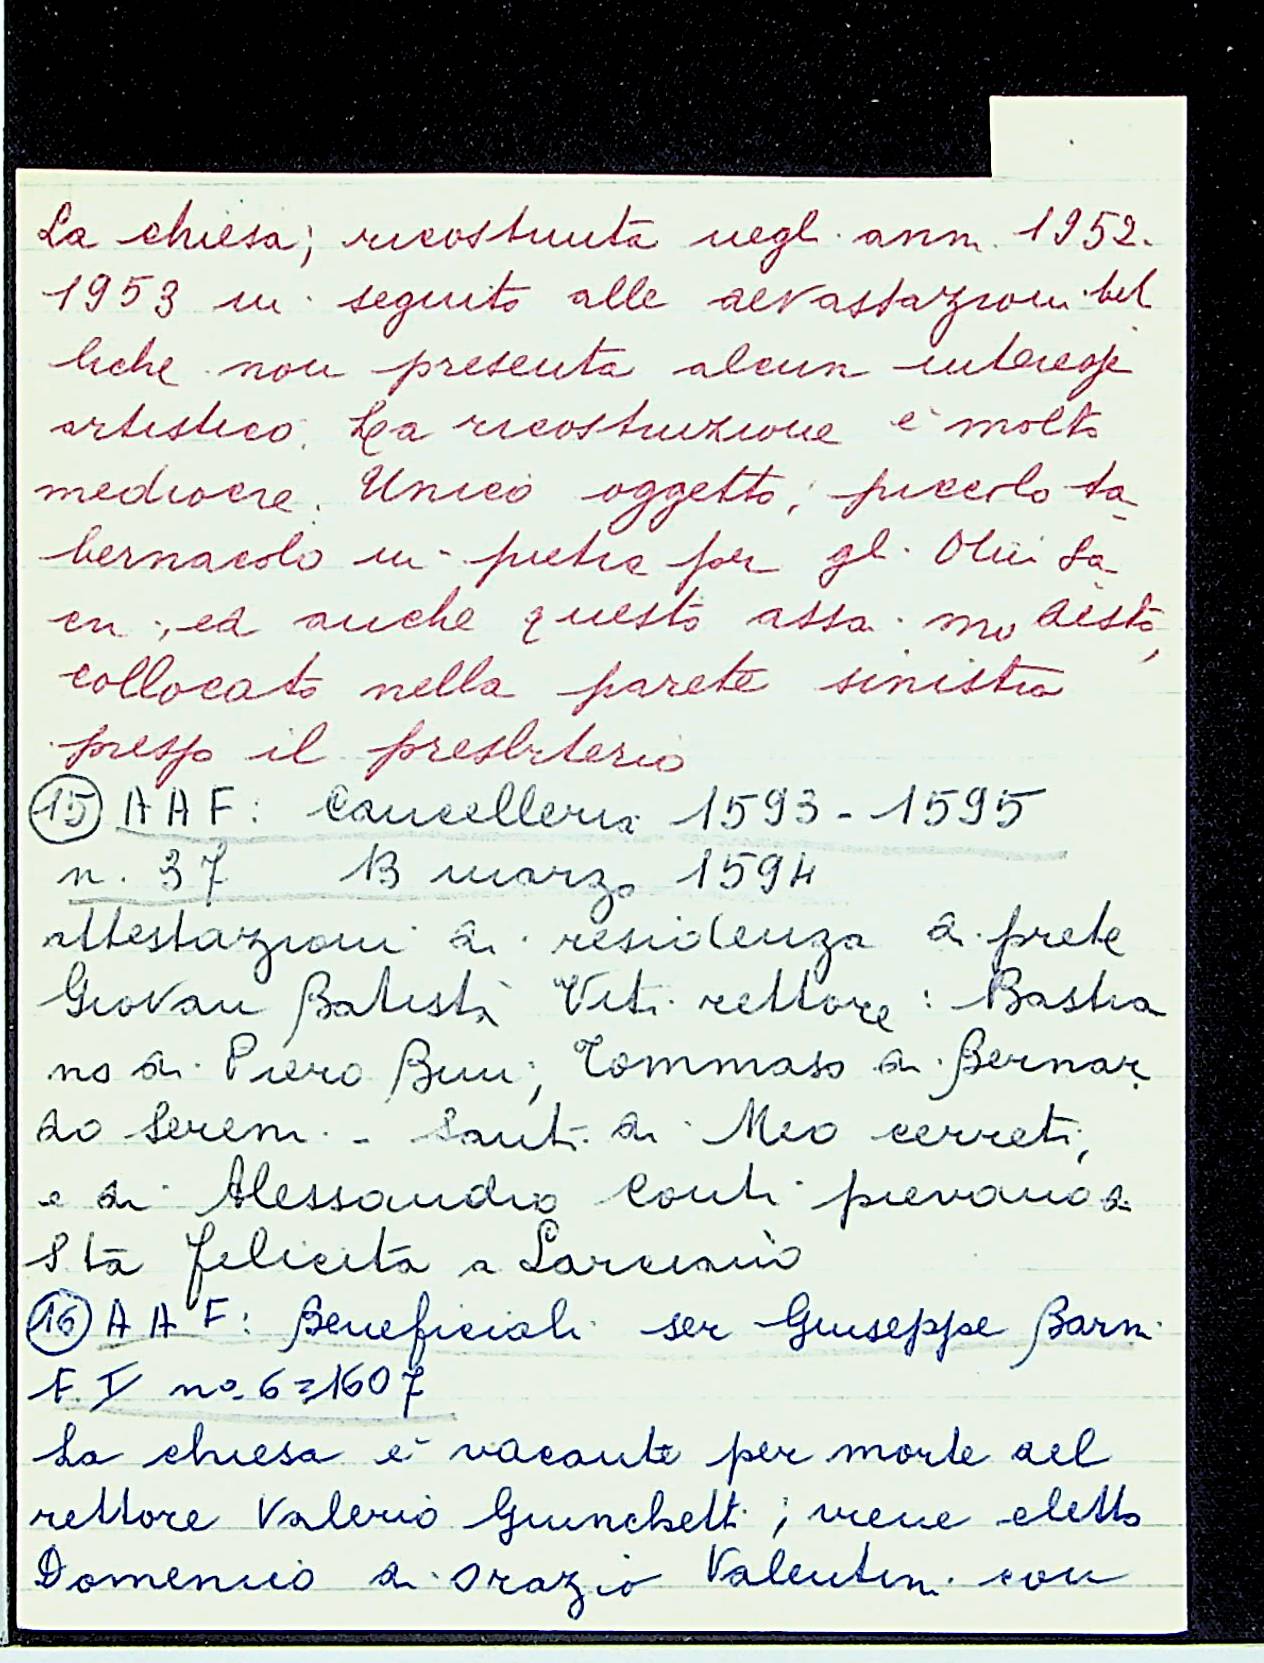 La chiesa, ricostruita negli anni 1952-
1953 in seguito alle devastazioni bel
liche non presenta alcun interesse
artistico. La ricostruzione è molto
mediocre. Unico oggetto, piccolo ta-
bernacolo in pietra per gli Olii Sa-
cri, ed anche questo assai modesto,
collocato nella parete sinistra
presso il presbiterio
15 AAF: Cancelleria 1593-1595
n. 37 13 marzo 1594
attestazioni di residenza di prete
Giovan Batista Viti rettore: Bastia
no di Piero Buii; Tommaso di Bernar-
do Sereni - Santi di Meo Cerreti,
e di Alessandro Conti pievano di
Sta Felicita a Larciano
16 AAF: Beneficiali ser Giuseppe Barni
F. V no. 6=1607
La chiesa è vacante per morte del
rettore Valerio Giunchetti; viene eletto
Domenico di Orazio Valentini con